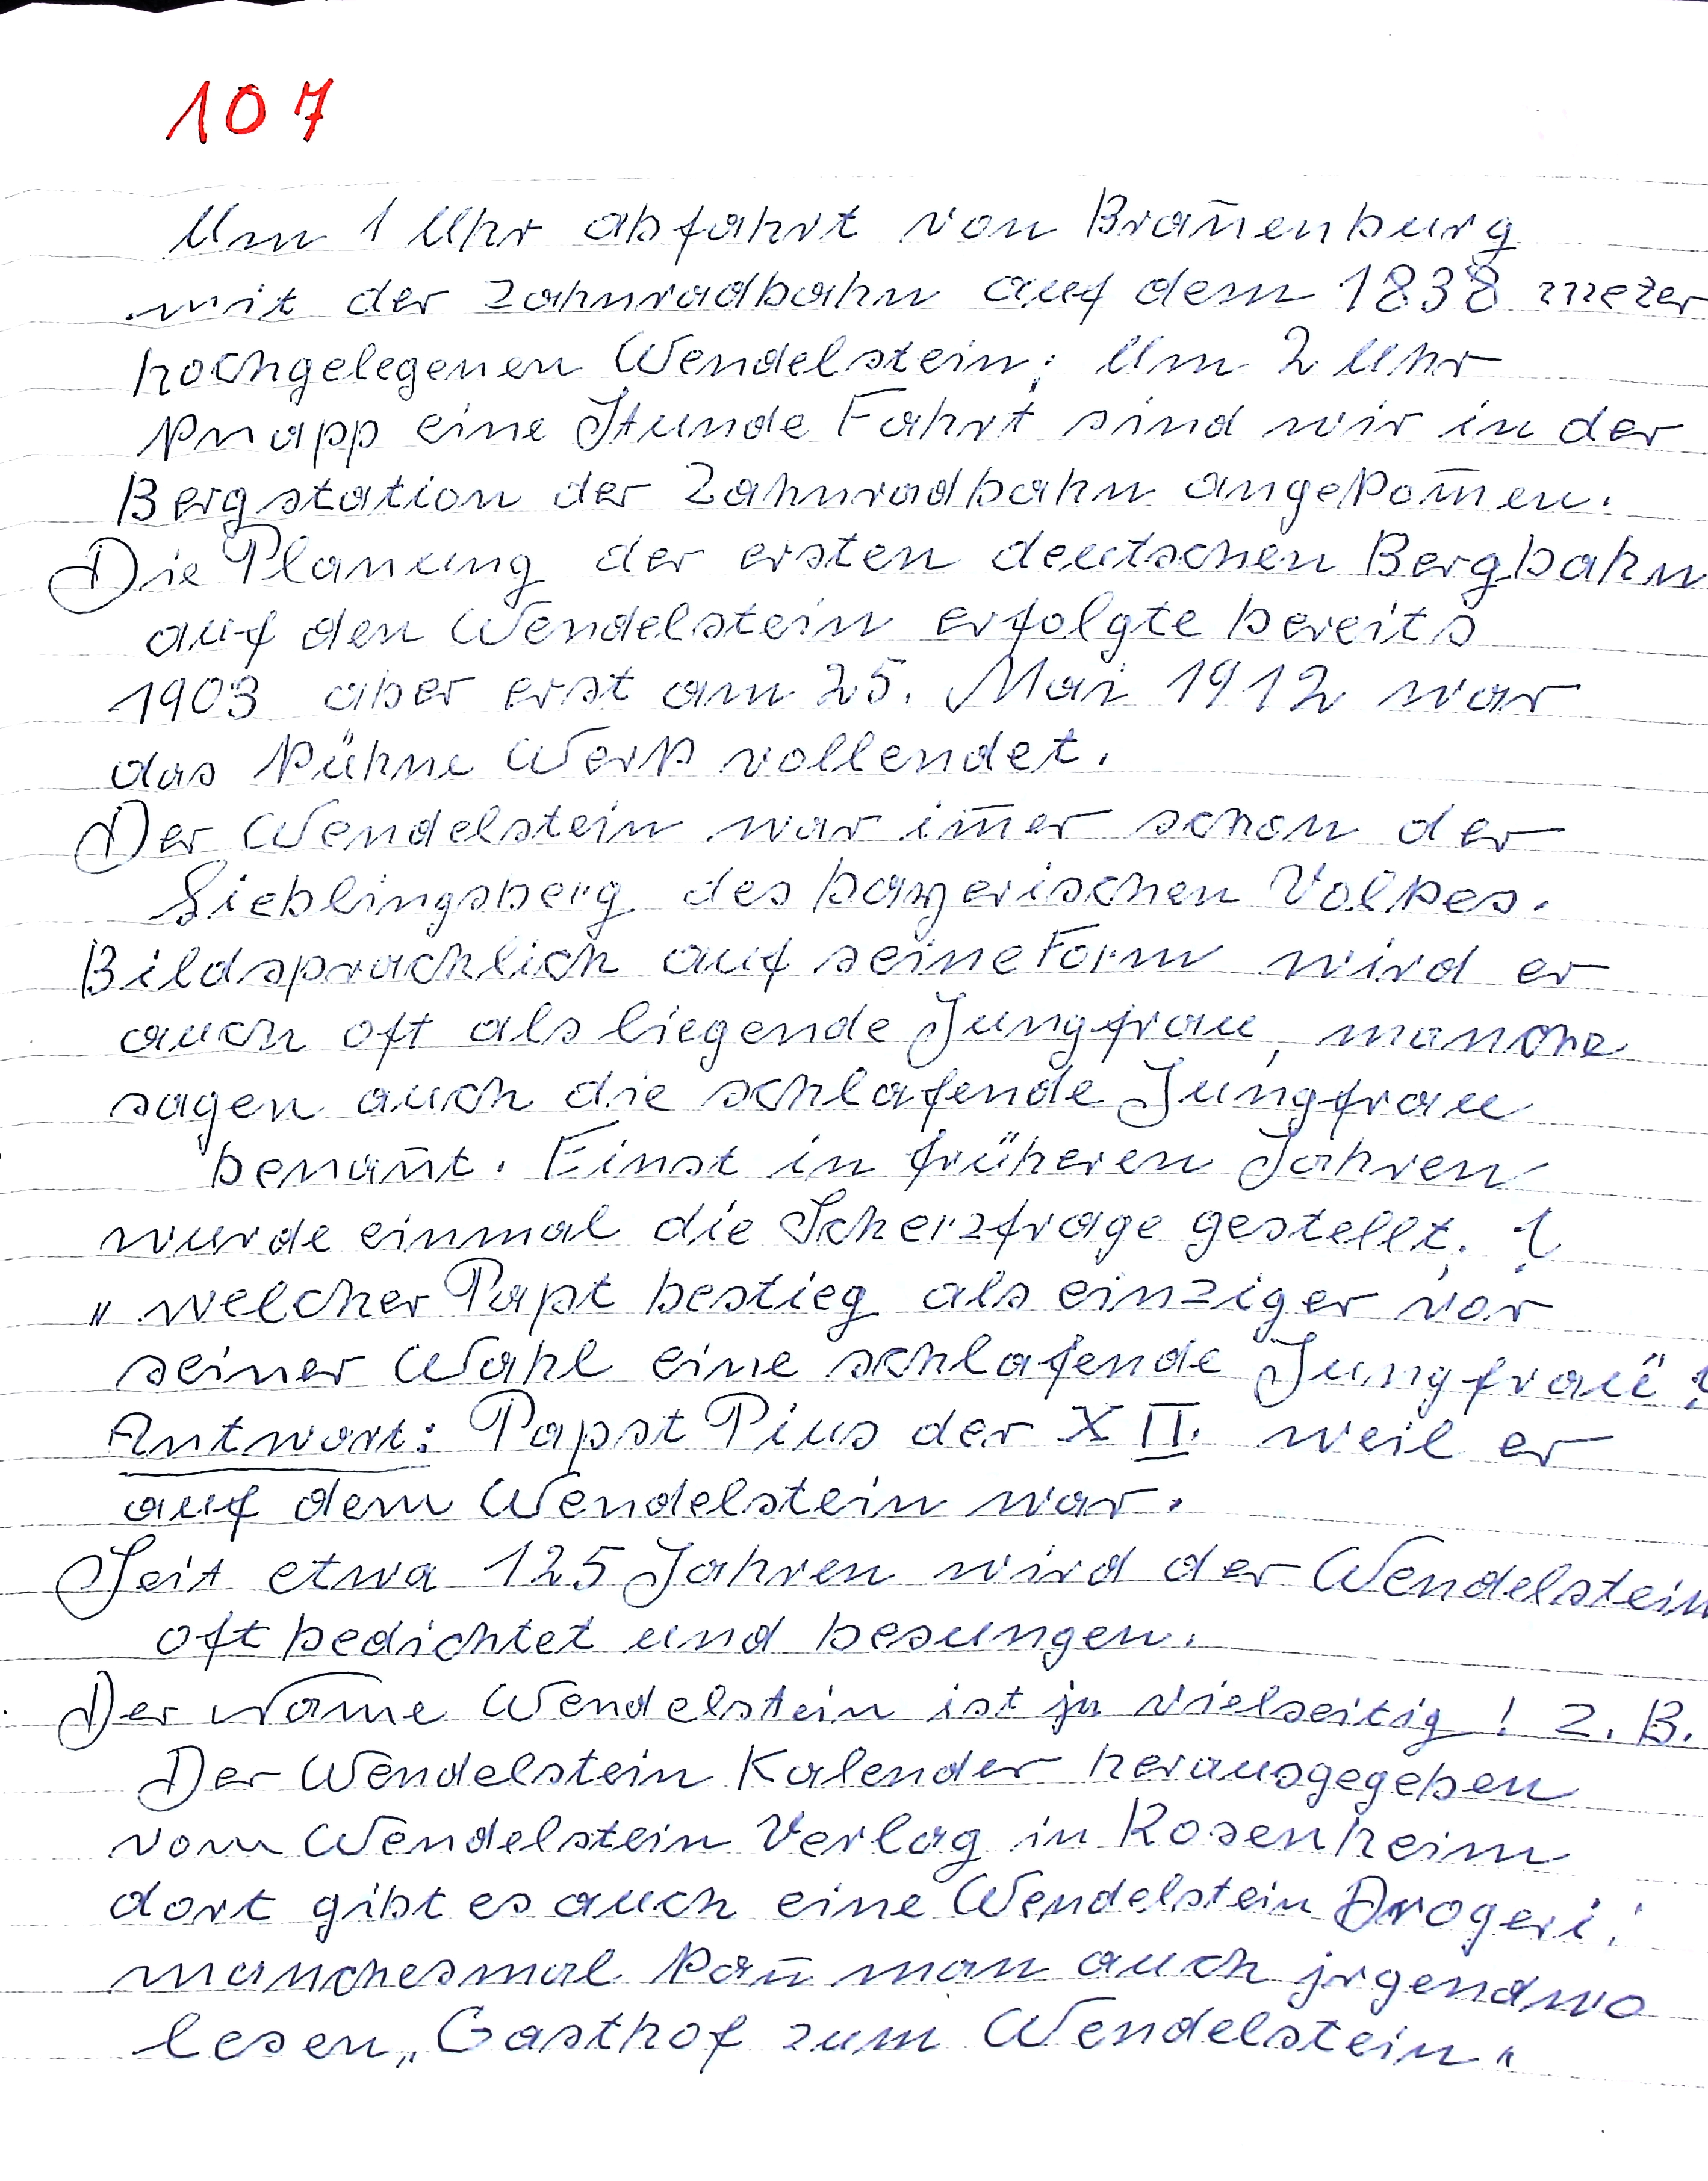 107
Um 1 Uhr abfahrt von Bran̄enburg
mit der Zahnradbahn auf dem 1838 meter
hochgelegenen Wendelstein; Um 2 Uhr
knapp eine Stunde Fahrt sind wir in der
Bergstation der Zahnradbahn angekom̄en.
Die Planung der ersten deutschen Bergbahn
auf den Wendelstein erfolgte bereits
1903 aber erst am 25. Mai 1912 war
das kühne Werk vollendet.
Der Wendelstein war im̄er schon der
Lieblingsberg des bayerischen Volkes.
Bildsprachlich auf seine Form wird er
auch oft als liegende Jungfrau, manche
sagen auch die schlafende Jungfrau
benan̄t. Einst in früheren Jahren
wurde einmal die Scherzfrage gestellt. ?
„welcher Papt bestieg als einziger vor
seiner Wahl eine schlafende Jungfrau" ?
Antwort: Papst Pius der XII. weil er
auf dem Wendelstein war.
Seit etwa 125 Jahren wird der Wendelstein
oft bedichtet und besungen.
Der Name Wendelstein ist ja vielseitig! z. B.
Der Wendelstein Kalender herausgegeben
vom Wendelstein Verlag in Rosenheim
dort gibt es auch eine Wendelstein Drogeri;
manchesmal kan̄ man auch jrgendwo
lesen „Gasthof zum Wendelstein"